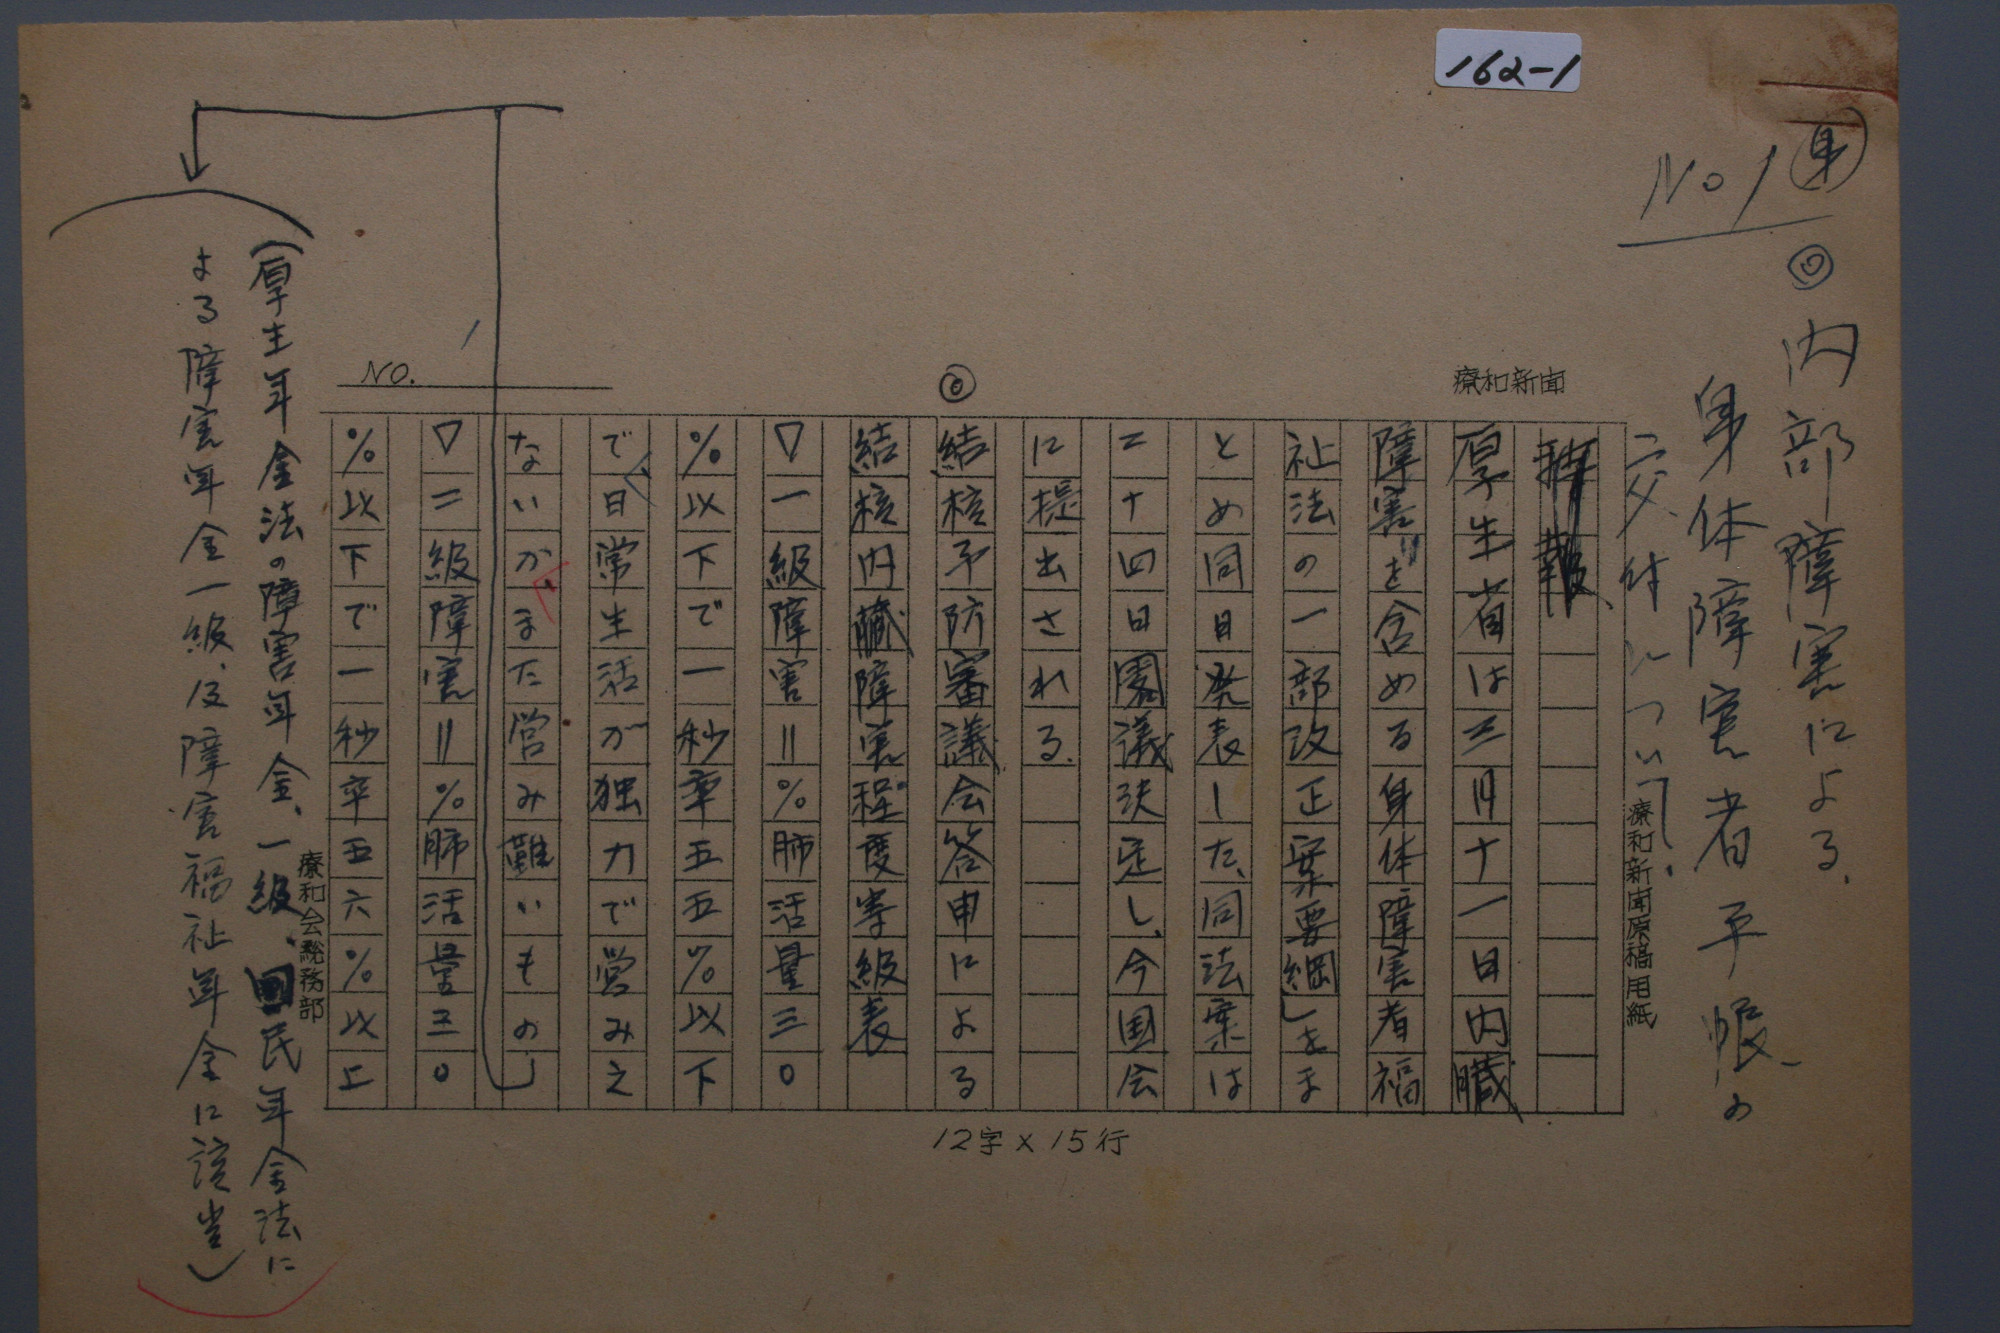 162-1
身
No 1
◎内部障害による、
身体障害者手帳の
交付について。
療和新聞
療和新聞原稿用紙
厚生省は三月十一日内臓
障害を含める身体障害者福
祉法の一部改正案要綱をま
とめ同日発表した、同法案は
二十四日閣議決定し、今国会
に提出される。
◎
結核予防審議会答申による
結核内臓障害程度等級表
▽一級障害=%肺活量三〇
%以下で一秒率五五%以下
で、日常生活が独力で営みえ
ないか、また営み難いもの
▽二級障害=%肺活量三〇
%以下で一秒率五六%以上
NO.
12字×15行
療和会総務部
(厚生年金法の障害年金、一級、国民年金法に
よる障害年金一級、及障害福祉年金に該当)